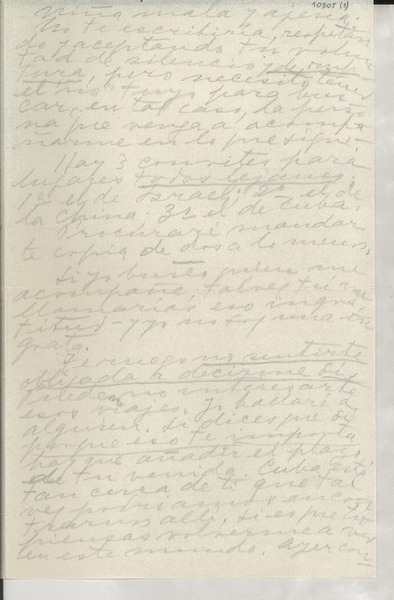 10305 (1)
niña mala y ajena.
No te escribiría, respetan
do y aceptando tu volun
tad de silencio y de rup
tura, pero necesito tener
el no tuyo para bus
car, en tal caso, la perso
na que venga a acompa
ñarme en lo que sigue.
Hay 3 convites para
lugares todos lejanos:
1º el de Israel; 2º el de
la China. 3º el de Cuba.
Procuraré mandar
te copia de dos a lo menos.
Si yo busco quien me
acompañe, talvez tu me
llamarías eso ingra
titud - y yo no soy una in
grata.
Te ruego no sentirte
obligada a decirme sí.
Puede no interesarte
esos viajes. Yo hallaría
alguien. Si dices que sí
porque eso te importa
hay que añadir el plazo
de tu venida. Cuba está
tan cerca de ti que tal
vez podríamos encon
trarnos allí, si es que tu
piensas volverme a ver
en este mundo. Ayer con